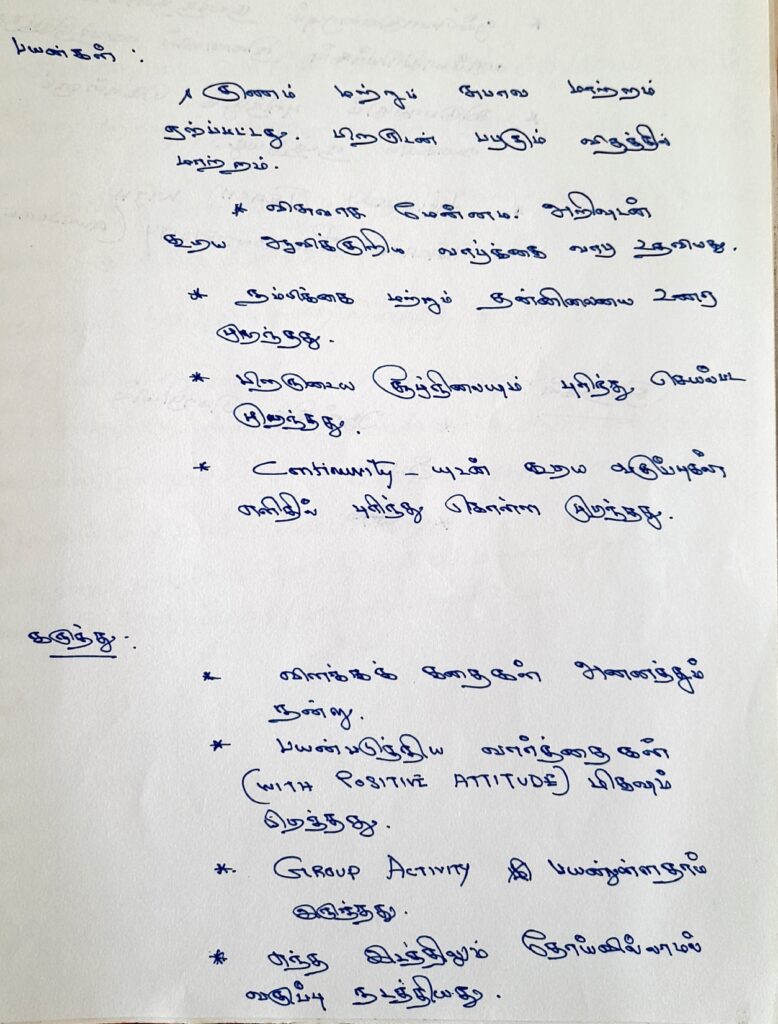 பயன்கள் :
* குணம் மற்றும் சுபாவ மாற்றம்
ஏற்பட்டது. பிறருடன் பழகும் விதத்தில்
மாற்றம்.
* விசுவாச மேன்மை. அறிவுடன்
கூடிய ஆவிக்குறிய வாழ்க்கை வாழ உதவியது.
* நம்பிக்கை மற்றும் தன்னிலையை உணர
முடிந்தது.
* பிறருடைய சூழ்நிலையும் புரிந்து செயல்பட
முடிந்தது.
* Continuity - யுடன் கூடிய வகுப்புகள்
எளிதில் புரிந்து கொள்ள முடிந்தது.
கருத்து :
* விளக்கக் கதைகள் அனைத்தும்
நன்று.
* பயன்படுத்திய வார்த்தைகள்
(WITH POSITIVE ATTITUDE) மிகவும்
பிடித்தது.
* GROUP ACTIVITY பயனுள்ளதாம்
இருந்தது.
* எந்த இடத்திலும் தோய்வில்லாமல்
வகுப்பு நடத்தியது.